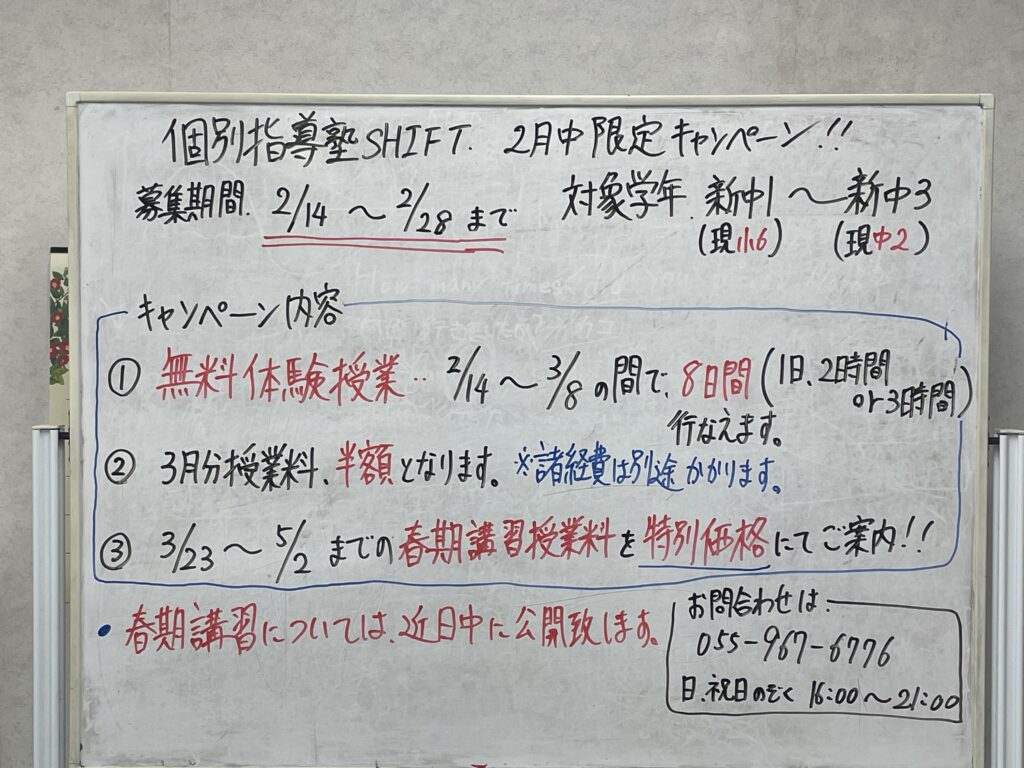 個別指導塾SHIFT. 2月中限定キャンペーン!!
募集期間. 2/14 〜 2/28 まで
対象学年. 新中1 〜 新中3
(現小6) (現中2)
キャンペーン内容
① 無料体験授業‥ 2/14 〜 3/8 の間で、8日間(1日、2時間
or 3時間)
行なえます。
② 3月分授業料、半額となります。※諸経費は別途かかります。
③ 3/23 〜 5/2 までの春期講習授業料を特別価格にてご案内!!
• 春期講習については、近日中に公開致します。
お問合わせは、
055-967-6776
日、祝日のぞく 16:00〜21:00